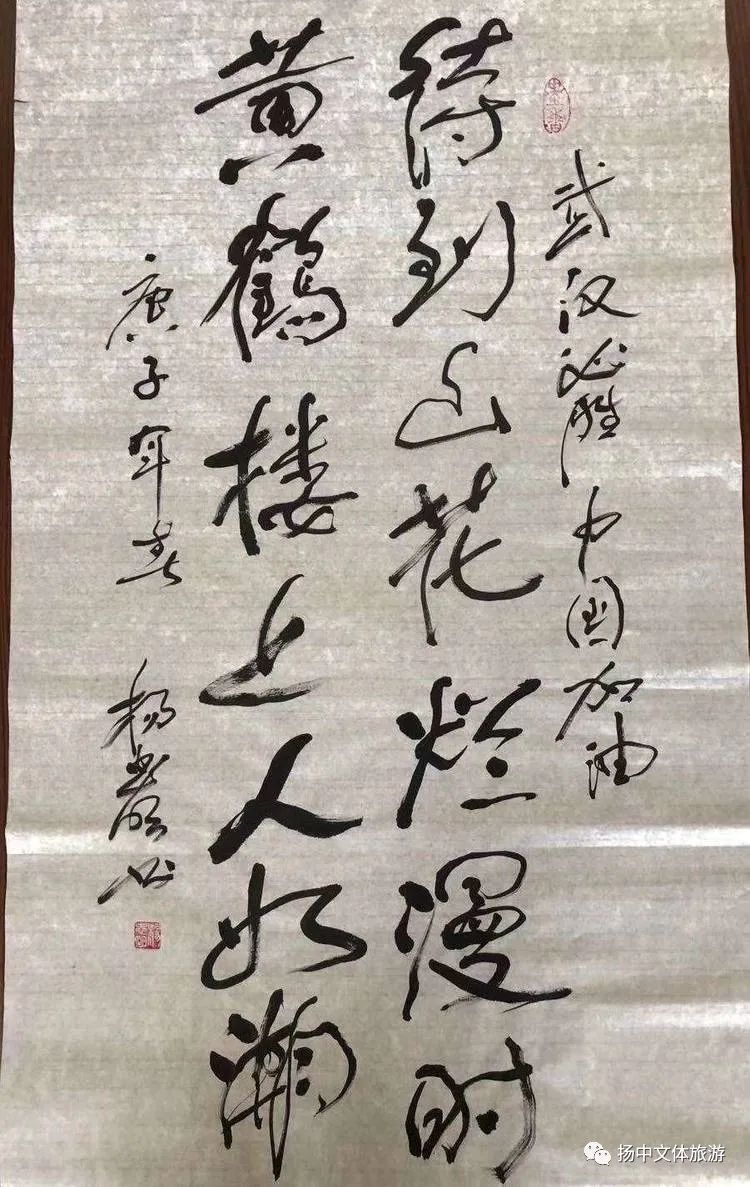 武汉必胜中国加油
待到山花烂漫时
黄鹤楼上人如潮
庚子年春
杨
扬中文体旅游